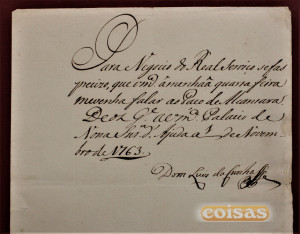 Para Negocio do Real Serviço se faz
precizo, que vm.ce á manhãa quarta feira
me venha falar ao Paço de Alcantara.
Deos G.e a vm.ce Palacio de
Nossa Snr.a d. Ajuda a 1 de Novem-
bro de 1763.
Dom Luis da Cunha
coisas